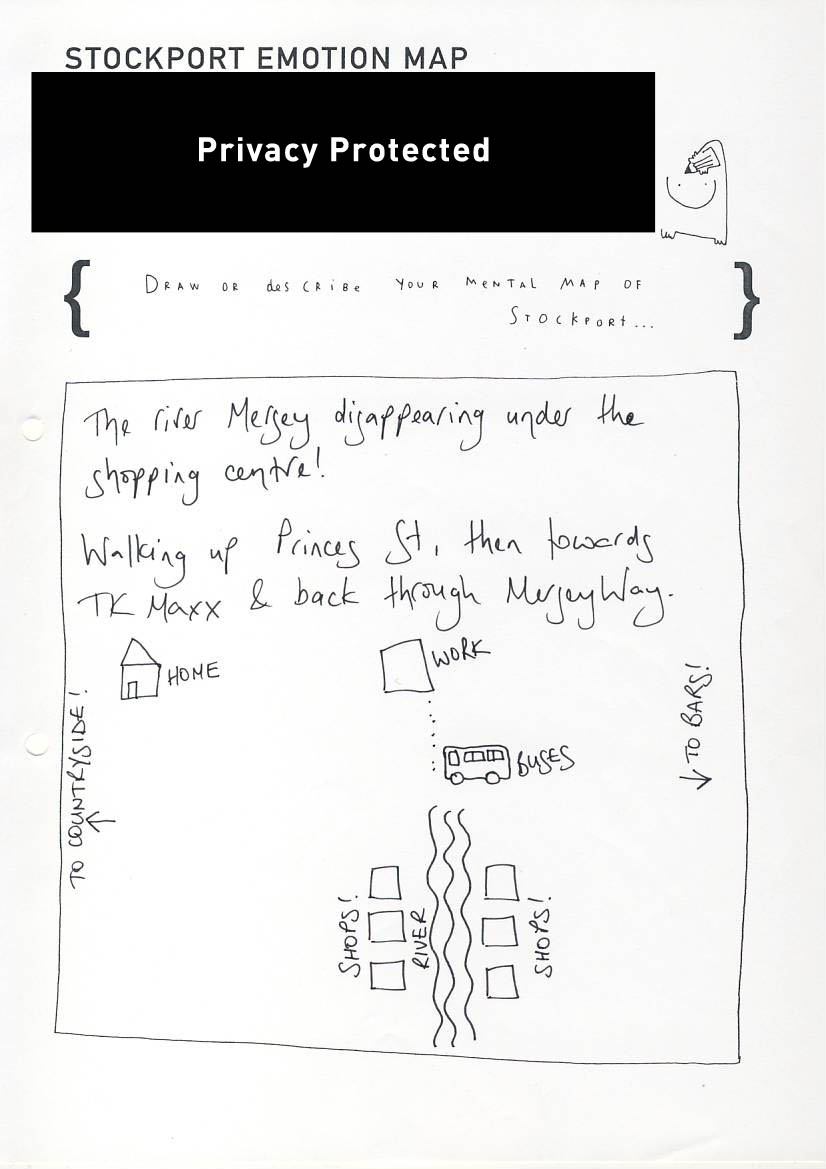 STOCKPORT EMOTION MAP
Privacy Protected
DRAW OR desCRiBe YOUR MeNTAL MAP OF
STOCKPORt...
The river Mersey disappearing under the
shopping centre!
Walking up Princes St, then towards
TK Maxx & back through MerseyWay.
HOME
WORK
TO COUNTRYSIDE!
TO BARS!
BUSES
SHOPS!
RIVER
SHOPS!